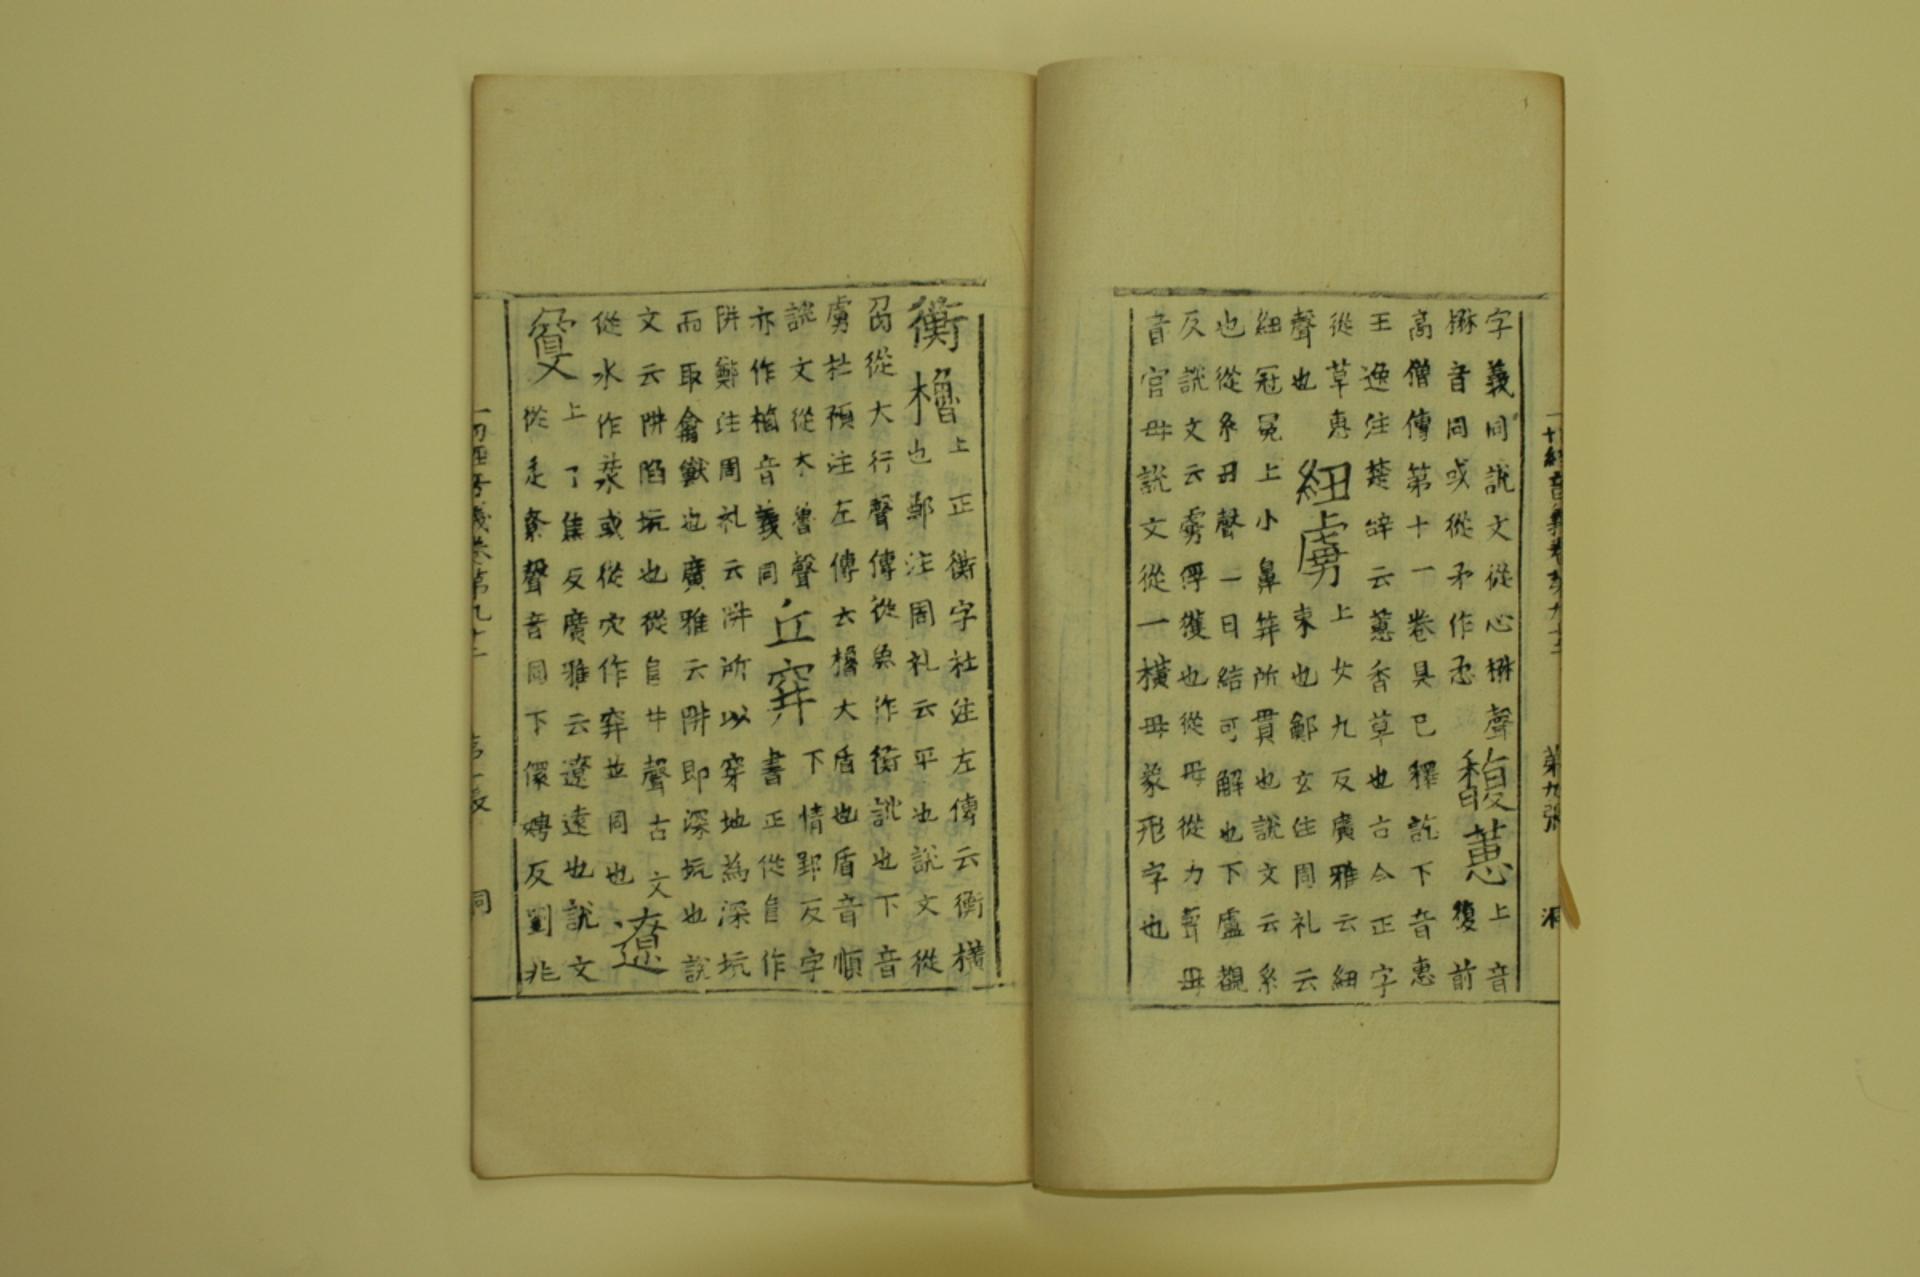 字義同說文從心楙聲馥蕙上音
楙音同或從矛作懋復前
高僧傳第十一卷具已釋訖下音惠
王逸注楚辞云蕙香草也古今正字
從草惠紐虜上女九反廣雅云紐
聲也束也鄭玄注周礼云
紐冠冕上小鼻笄所貫也說文云系
也從糸丑聲一曰結可解也下盧觀
反說文云虜俘獲也從毌從力聲毌
音官毌說文從一橫毌象形字也
衡櫓上正衡字社注左傳云衡橫
也鄭注周礼云平也說文從
角從大行聲傳從魚作衡訛也下音
虜杜預注左傳云櫓大盾也盾音順
說文從木魯聲丘穽下情郢反字
亦作樐音義同書正從自作
阱鄭注周礼云阱所以穿地為深坑
而取禽獸也廣雅云阱即深坑也說
文云阱陷坑也從自井聲古文遼
從水作汬或從穴作穽並同也
敻上了焦反廣雅云遼遠也說文
從辵尞聲音同下儇娉反劉兆